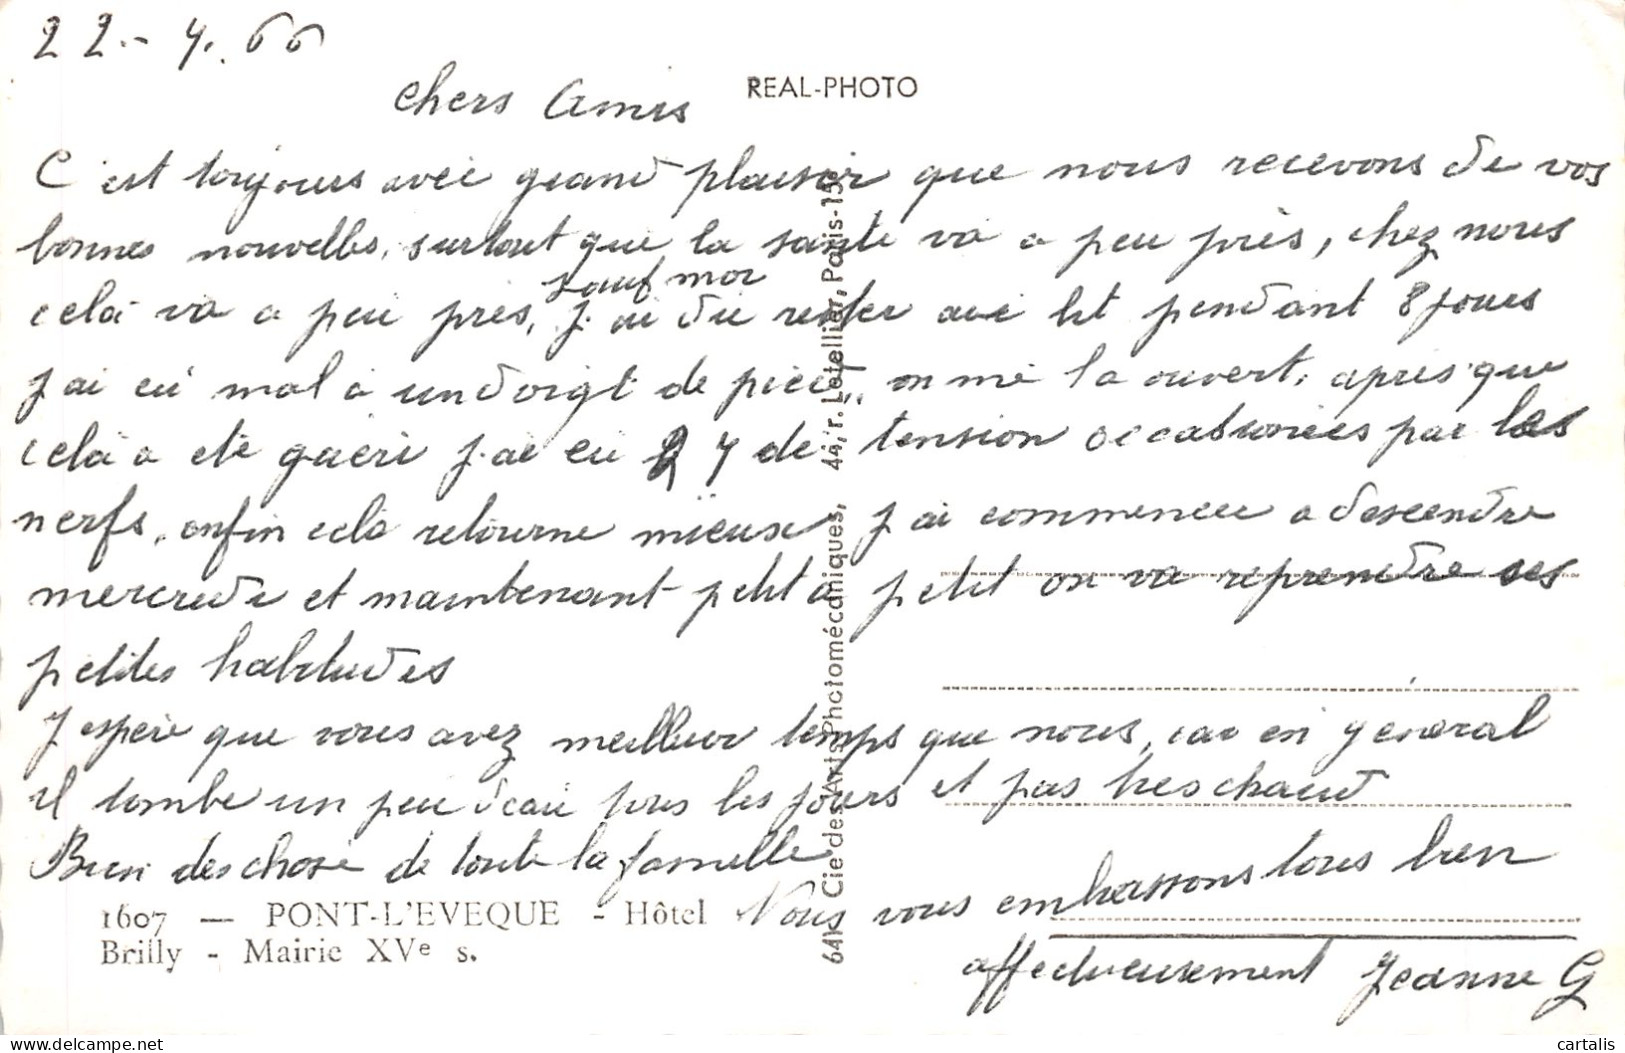 22 - 4. 66
Chers Amis
REAL-PHOTO
C'est toujours avec grand plaisir que nous recevons de vos
bonnes nouvelles, surtout que la santé va a peu près, chez nous
celà va a peu près, sauf moi j'ai du rester au lit pendant 8 jours
j'ai eu mal à un doigt de pied, on me l'a ouvert, après que
celà a été guéri j'ai eu 24 de tension occasionnées par les
nerfs, enfin celà retourne mieux j'ai commencer a descendre
mercredi et maintenant petit à petit on va reprendre ses
petites habitudes
J'espère que vous avez meilleur temps que nous, car en général
il tombe un peu d'eau tous les jours et pas tres chaud
Bien des chose de toute la famille
Nous vous embrassons tous bien
affectueusement Jeanne G
1607 — PONT-L'EVEQUE - Hôtel
Brilly - Mairie XVe s.
64k Cie des Arts Photomécaniques, 44, r. Letellier, Paris-15e
delcampe.net
cartalis